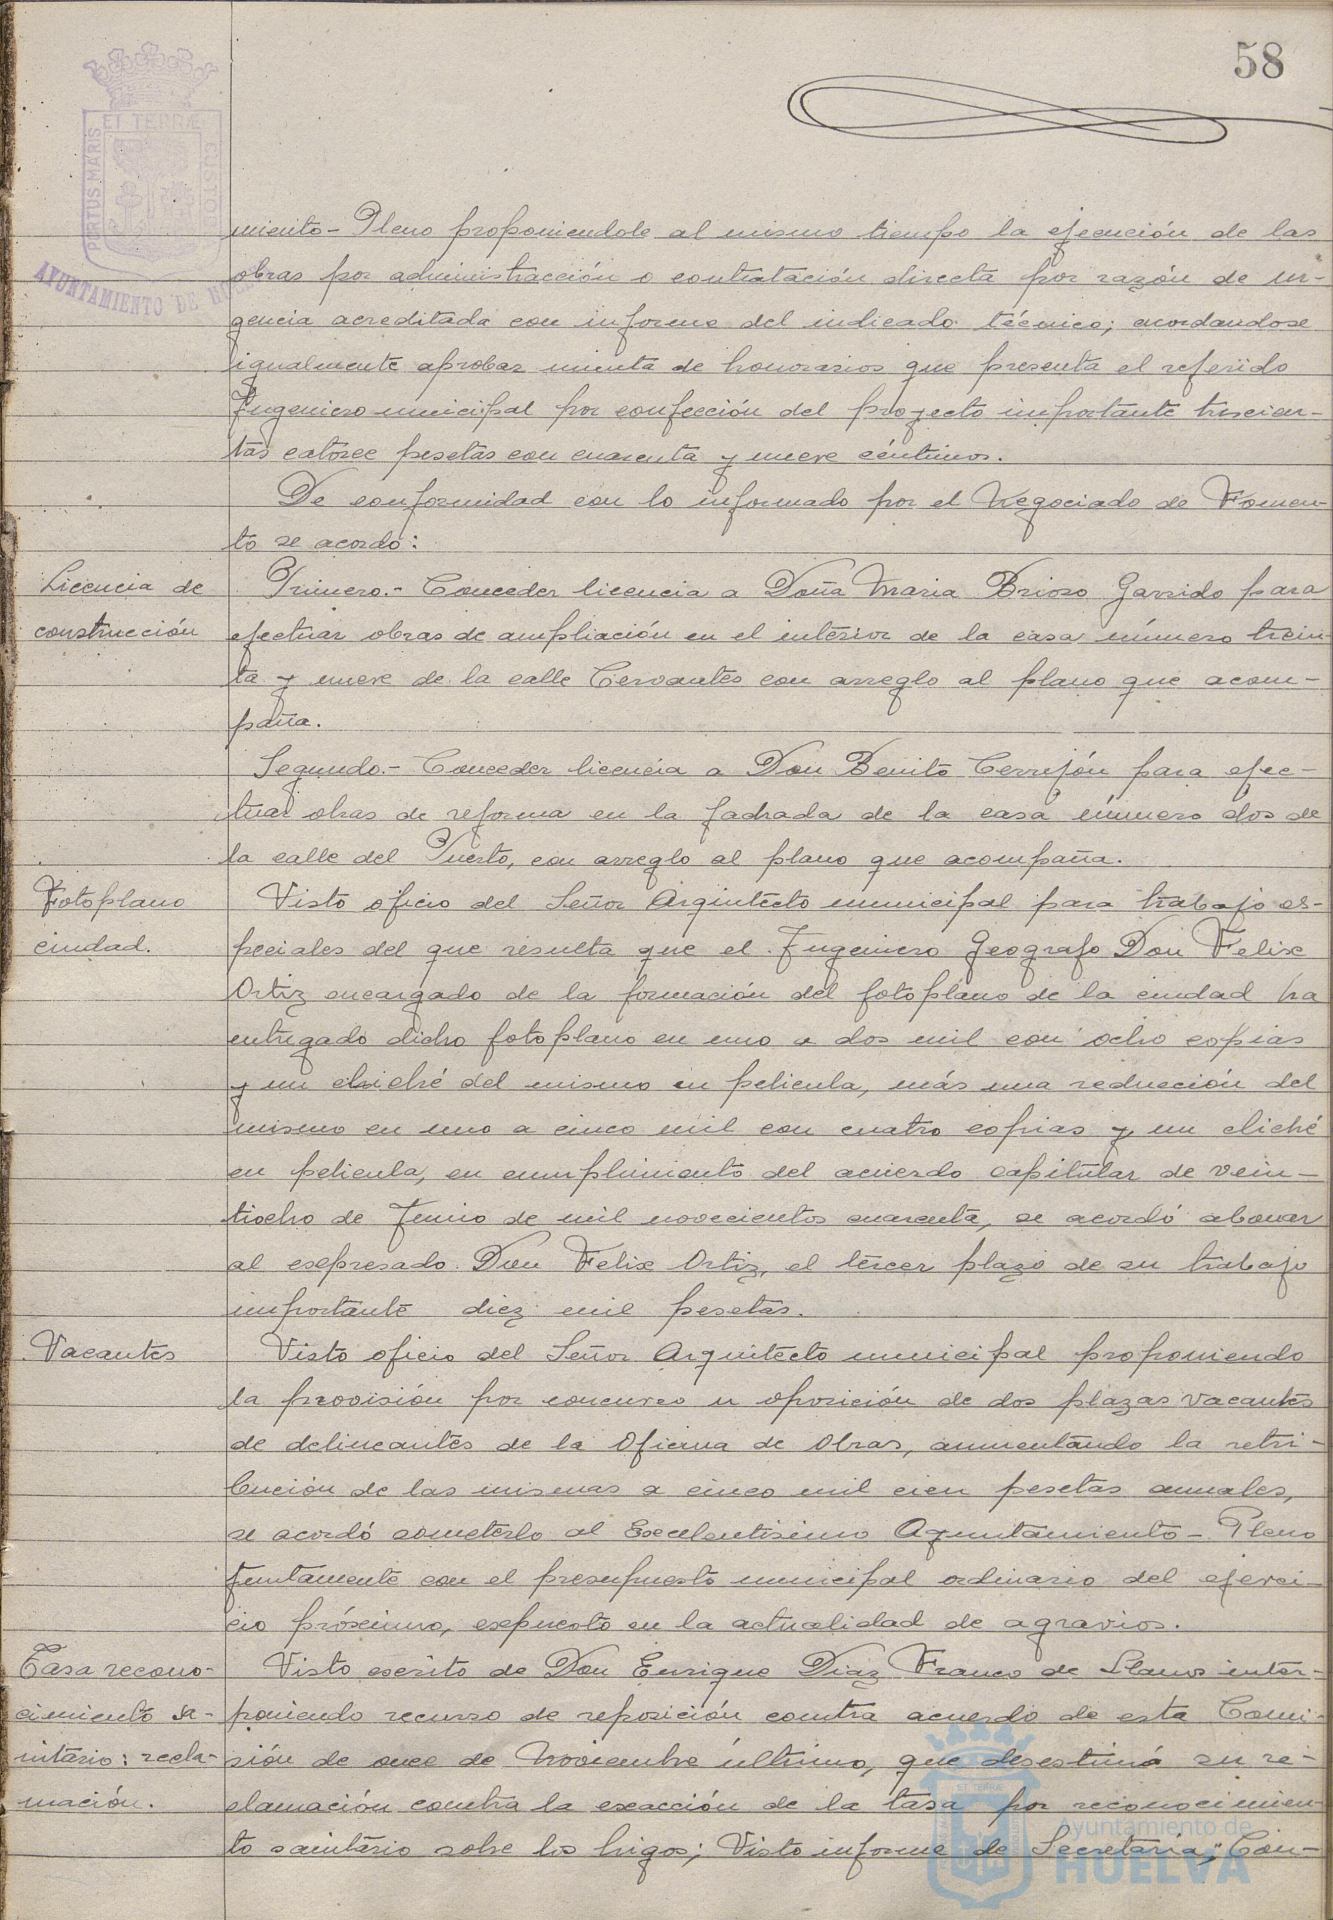 58
PORTUS MARIS ET TERRÆ CUSTOS
AYUNTAMIENTO DE HUELVA
miento - Pleno proponiendole al mismo tiempo la ejecución de las
obras por administracción o contratación directa por razón de ur-
gencia acreditada con informe del indicado técnico; acordandose
igualmente aprobar minuta de honorarios que presenta el referido
Ingeniero municipal por confección del proyecto importante trescien-
tas catorce pesetas con cuarenta y nueve céntimos.
De conformidad con lo informado por el Negociado de Fomen-
to se acordó:
Licencia de
construcción
Primero.- Conceder licencia a Doña Maria Brioso Garrido para
efectuar obras de ampliación en el interior de la casa número trein-
ta y nueve de la calle Cervantes con arreglo al plano que acom-
paña.
Segundo.- Conceder licencia a Don Benito Cerrejón para efec-
tuar obras de reforma en la fachada de la casa número dos de
la calle del Puerto, con arreglo al plano que acompaña.
Fotoplano
ciudad.
Visto oficio del Señor Arquitecto municipal para trabajo es-
peciales del que resulta que el Ingeniero Geografo Don Felix
Ortiz encargado de la formación del fotoplano de la ciudad ha
entregado dicho fotoplano en uno a dos mil con ocho copias
y un cliché del mismo en pelicula, más una reducción del
mismo en uno a cinco mil con cuatro copias y un cliché
en pelicula, en cumplimiento del acuerdo capitular de vein-
tiocho de Junio de mil novecientos cuarenta, se acordó abonar
al expresado Don Felix Ortiz, el tercer plazo de su trabajo
importante diez mil pesetas.
Vacantes
Visto oficio del Señor Arquitecto municipal proponiendo
la provisión por concurso u oposición de dos plazas vacantes
de delineantes de la Oficina de Obras, aumentando la retri-
bución de las mismas a cinco mil cien pesetas anuales,
se acordó someterlo al Excelentisimo Ayuntamiento - Pleno
juntamente con el presupuesto municipal ordinario del ejerci-
cio próximo, expuesto en la actualidad de agravios.
Tasa recono-
cimiento sa-
nitario: recla-
mación.
Visto escrito de Don Enrique Diaz Franco de Llanos inter-
poniendo recurso de reposición contra acuerdo de esta Comi-
sión de once de Noviembre último, que desestimó su re-
clamación contra la exacción de la tasa por reconocimien-
to sanitario sobre los higos; Visto informe de Secretaria, "Con-
Ayuntamiento de
HUELVA